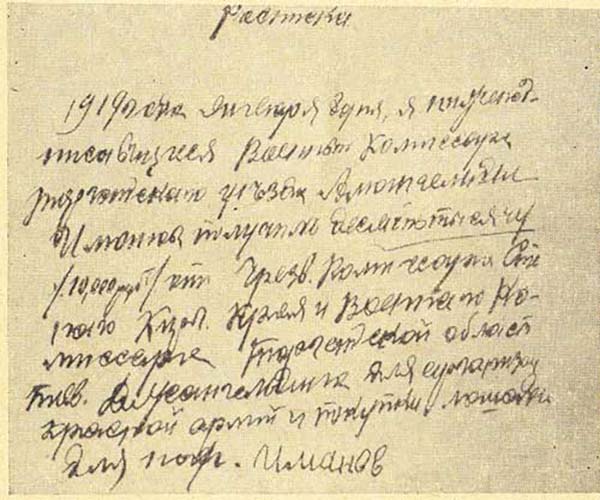 Расписка
1919 года января дня, я нижепод-
писавшиеся Военный Комиссар
уезда Амангельды
Иманов получил десять тысячу
/10,000 руб/ от Чрезв. Комиссара
Края и Военного Ко-
миссара Тургайской област
тов. Джангильдина для организац
красной армии и покупки лошади
для нас. Иманов